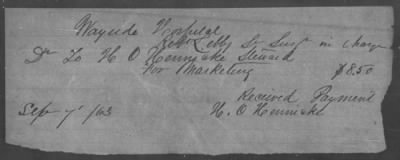 Wayside Hospital
Libby Sr Surg in charge
Dr To H O Hennicke Steward
For Marketing $8.50
Received Payment
Sep 7 /63 H. O Hennicke